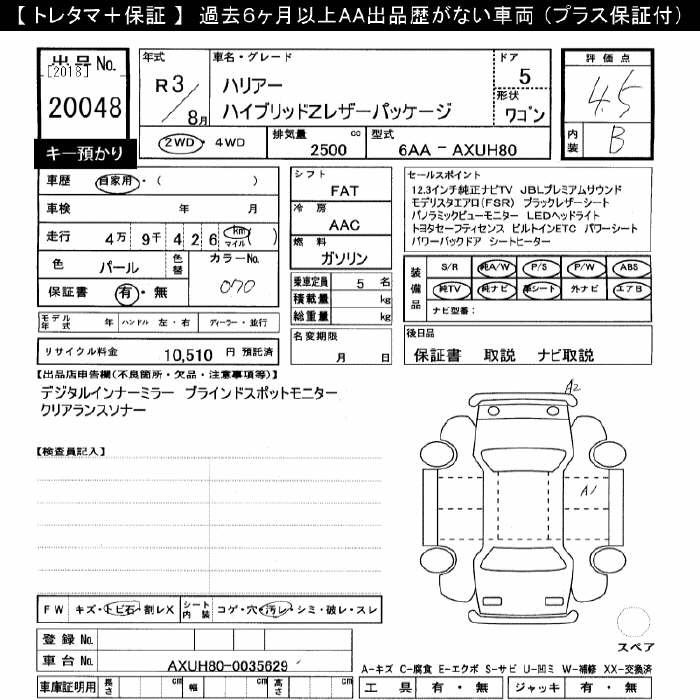 【 トレタマ＋保証 】 過去6ヶ月以上AA出品歴がない車両（プラス保証付）
出品No.
[2018]
20048
キー預かり
年式
R 3 / 8月
車名・グレード
ハリアー
ハイブリッドZレザーパッケージ
ドア
5
形状
ワゴン
2WD・4WD
排気量 cc
2500
型式
6AA － AXUH80
評価点
4.5
内装
B
車歴 自家用・（ ）
車検 年 月
走行 4万 9千 4 2 6 km マイル （ ）
色 パール 色替 カラーNo.
070
保証書 有・無
モデル年式 年 ハンドル 左・右 ディーラー・並行
リサイクル料金 10,510 円 預託済
シフト
FAT
冷房
AAC
燃料
ガソリン
乗車定員 5 名
積載量 kg
総重量 kg
名変期限
月 日
セールスポイント
12.3インチ純正ナビTV JBLプレミアムサウンド
モデリスタエアロ(FSR) ブラックレザーシート
パノラミックビューモニター LEDヘッドライト
トヨタセーフティセンス ビルトインETC パワーシート
パワーバックドア シートヒーター
装備品
S/R 純A/W P/S P/W ABS
純TV 純ナビ 革シート 外ナビ エアB
ナビ型番：
後日品
保証書 取説 ナビ取説
【出品店申告欄(不良箇所・欠品・注意事項等)】
デジタルインナーミラー ブラインドスポットモニター
クリアランスソナー
【検査員記入】
A2
A1
スペア
FW キズ・トビ石・割レX シート内装 コゲ・穴・汚レ・シミ・破レ・スレ
登録No.
車台No. AXUH80-0035629
車庫証明用 長さ cm 幅 cm 高さ cm
A-キズ C-腐食 E-エクボ S-サビ U-凹ミ W-補修 XX-交換済
工具 有・無 ジャッキ 有・無